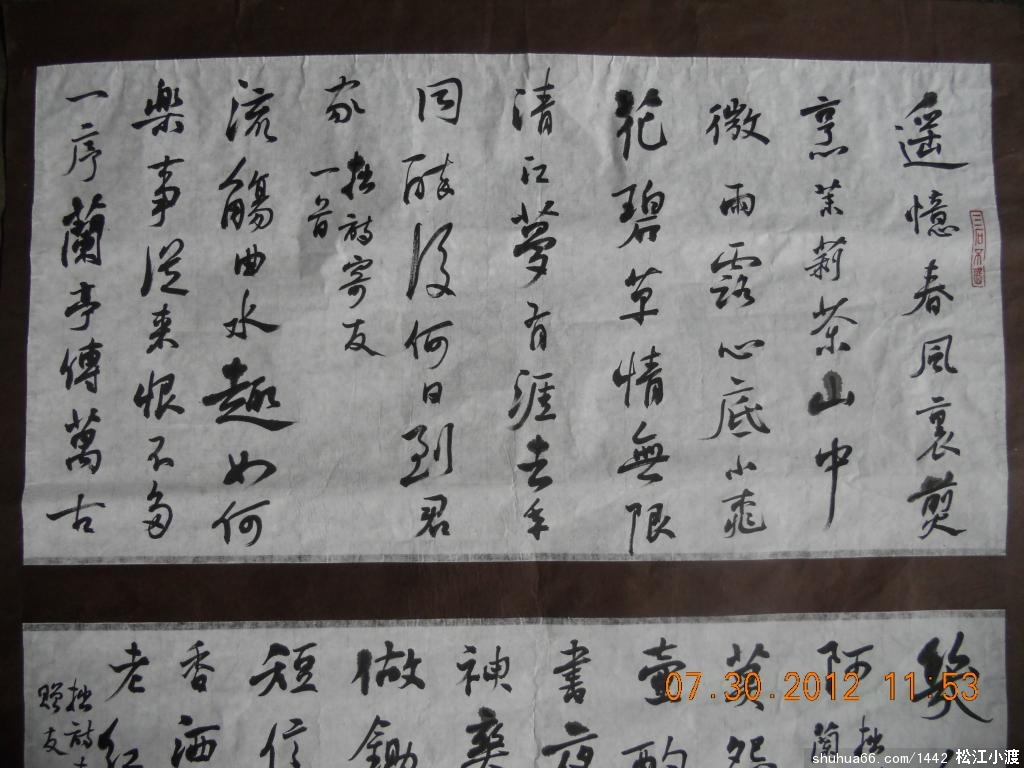 遥憶春風裏煎
烹茉莉茶山中
微雨露心底小乖
花碧草情無限
清江夢有涯去年
同醉後何日到君
家
拙詩寄友
一首
流觴曲水趣如何
樂事從來恨不多
一序蘭亭傳萬古
阿
拙
蘭
莫怨
壺酌
書夜
神
做鋤
短信
香洒
老紅
拙詩
贈友
07.30.2012 11:53
shuhua66.com/1442 松江小渡